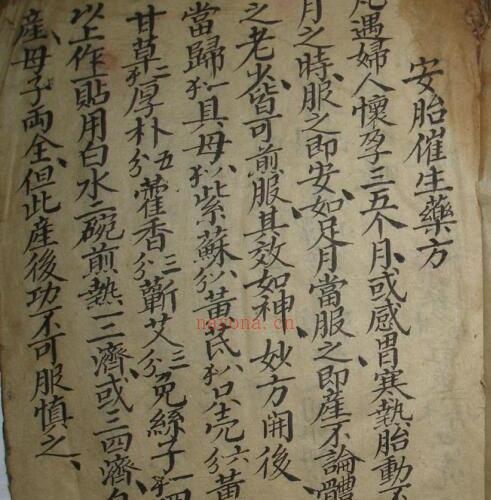 安胎催生藥方
凡遇婦人懷孕三五个月、或感冒寒熱胎動不
月之時、服之即安、如足月當服之、即産、不論體
之老少、皆可煎服其效如神、妙方開後、
當歸 具母 紫蘇 黃芪 只壳六分 黃
甘草 厚朴五分 藿香三分 蘄艾三分 免絲子
以上作一貼用白水二碗煎熱一二濟、或三四濟、
産、母子両全、但此産後功不可服慎之、
nayona.cn